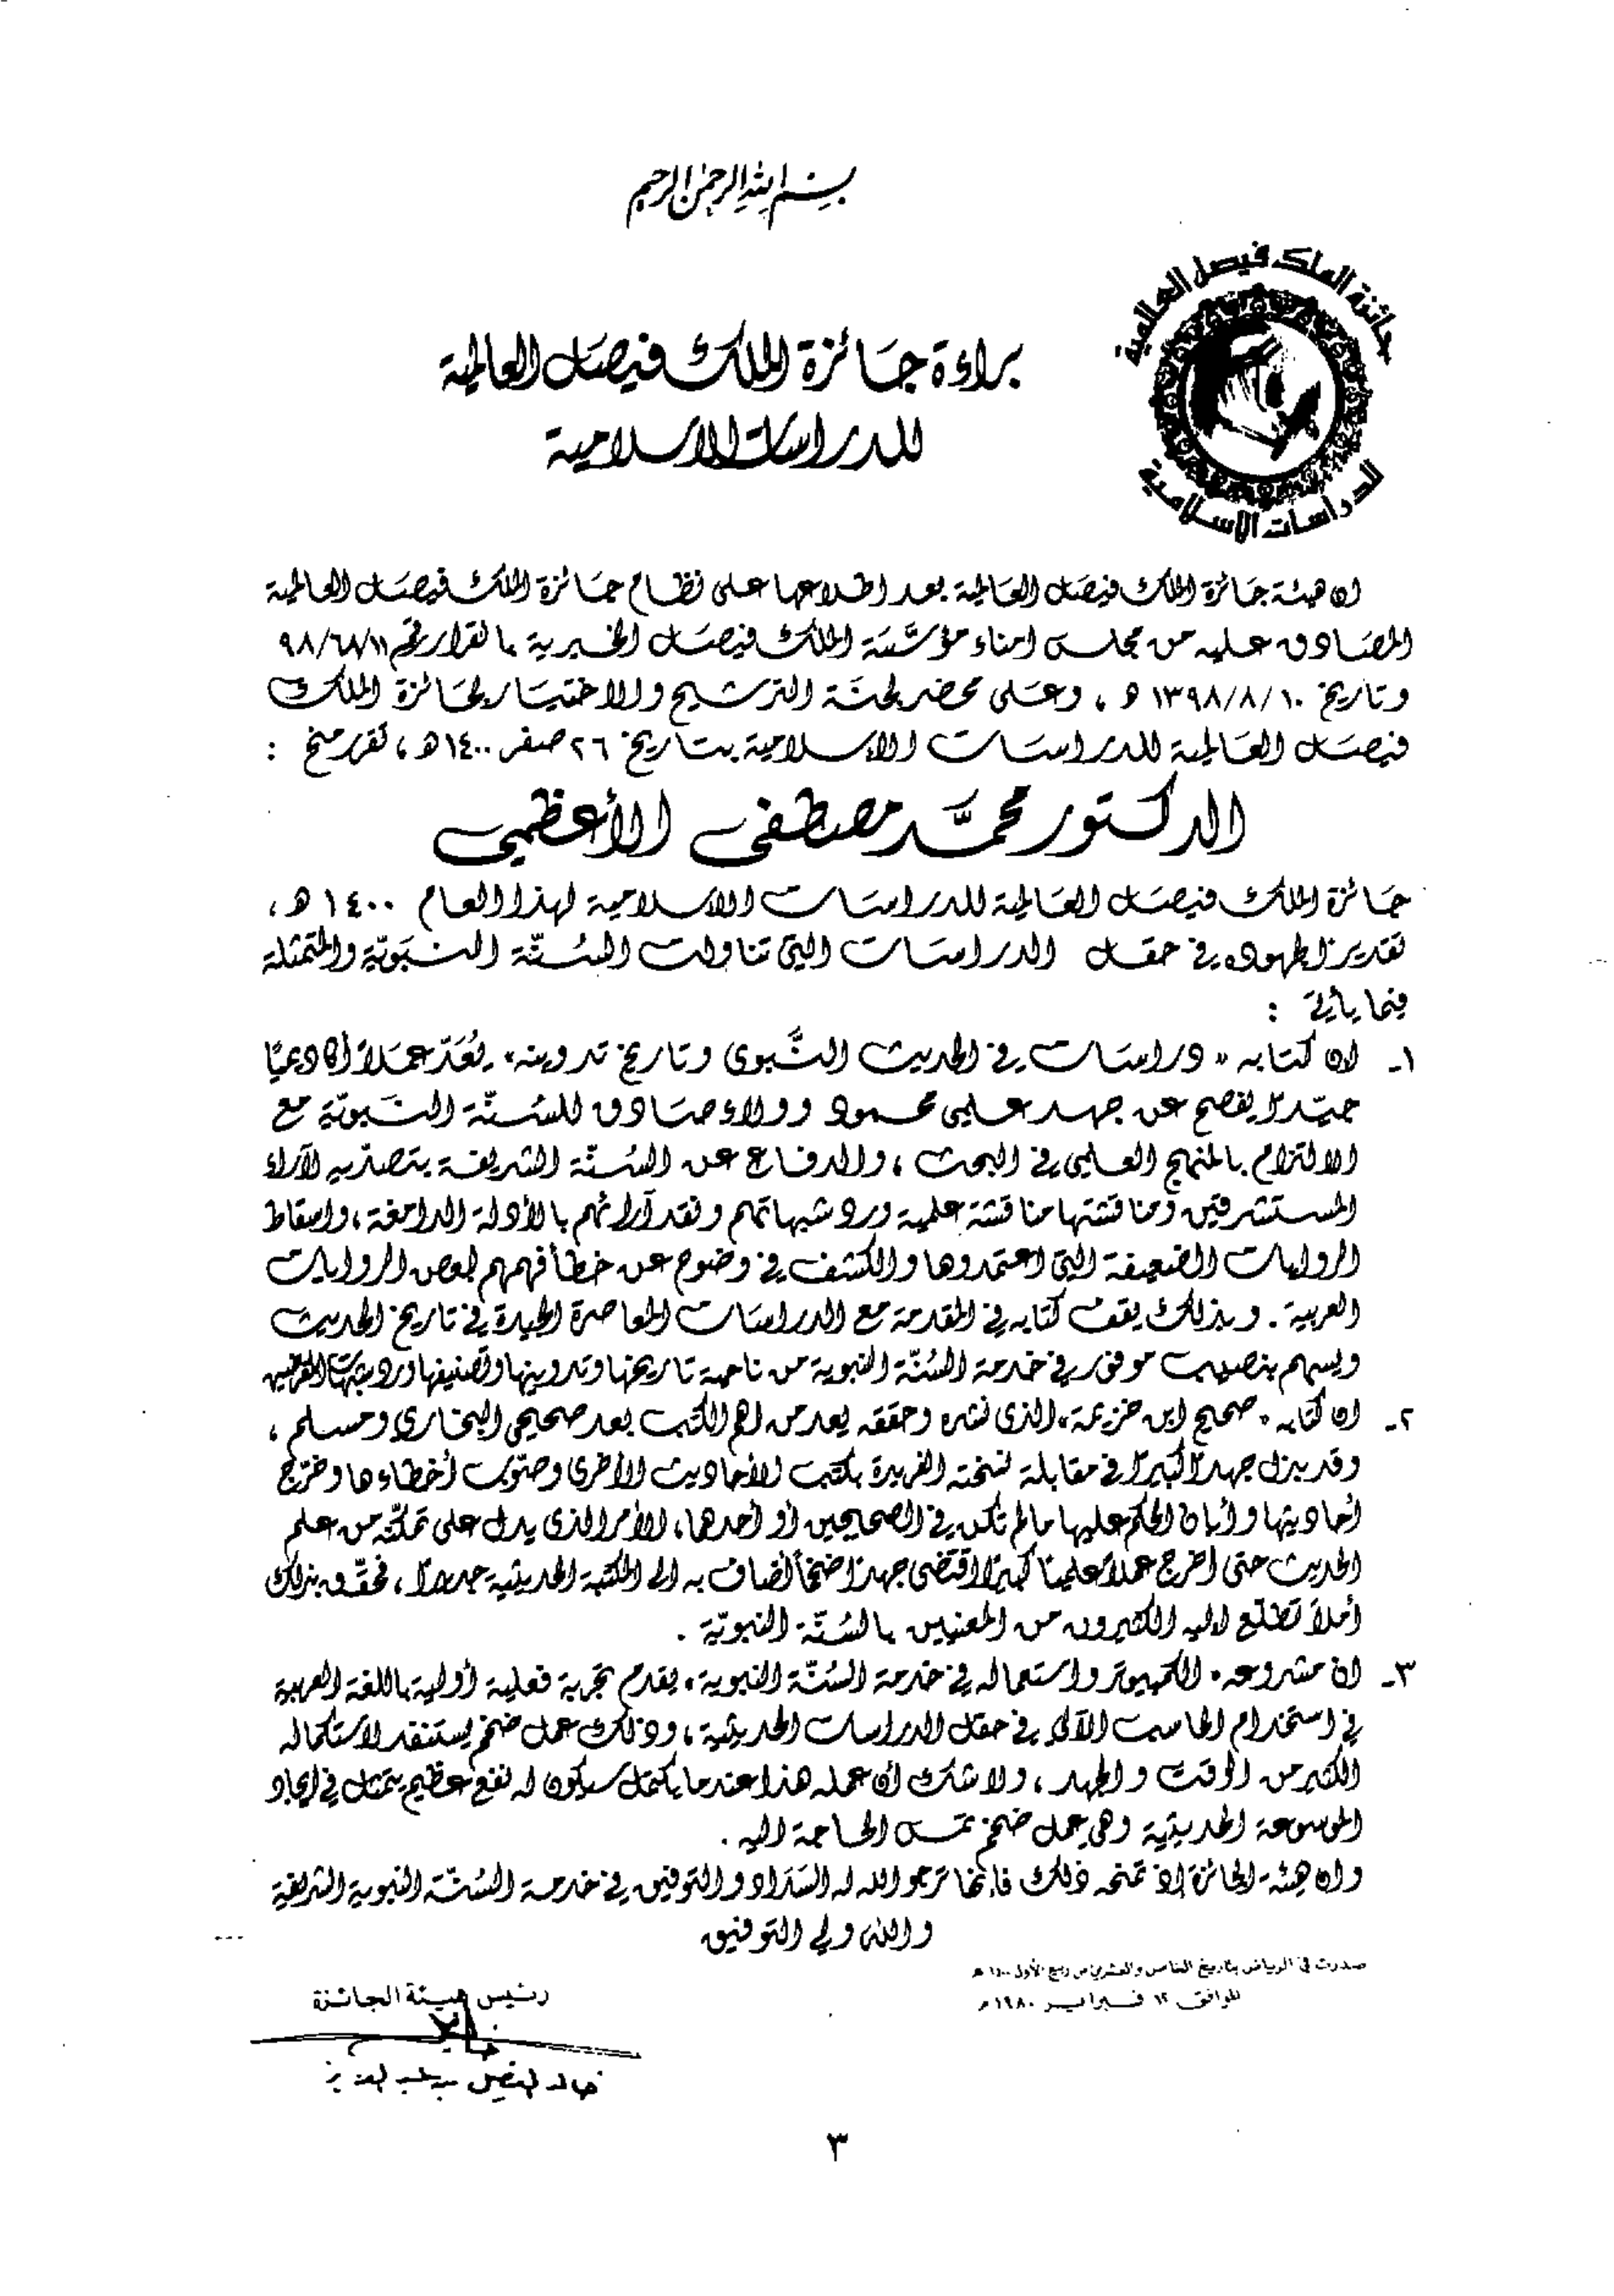 بسم الله الرحمن الرحيم
جائزة الملك فيصل العالمية
للدراسات الإسلامية
براءة جائزة الملك فيصل العالمية
للدراسات الاسلامية
ان هيئة جائزة الملك فيصل العالمية بعد اطلاعها على نظام جائزة الملك فيصل العالمية
المصادق عليه من مجلس امناء مؤسسة الملك فيصل الخيرية بالقرار رقم ٩٨/٦٨/١١
وتاريخ ١٣٩٨/٨/١٠ هـ ، وعلى محضر لجنة الترشيح والاختيار لجائزة الملك
فيصل العالمية للدراسات الاسلامية بتاريخ ٢٦ صفر ١٤٠٠هـ ، تقرر منح :
الدكتور محمَّد مصطفى الأعظمي
جائزة الملك فيصل العالمية للدراسات الاسلامية لهذا العام ١٤٠٠ هـ ،
تقديرا لجهوده في حقل الدراسات التي تناولت السُنّة النبَويّة والمتمثلة
فيما يأتي :
١- ان كتابه « دراسات في الحديث النَّبوى وتاريخ تدوينه » يُعَدّ عمَلاً أكاديميًا
جيّدا يفصح عن جهد علمي محمود وولاء صادق للسُنّة النبَويّة مع
الالتزام بالمنهج العلمي في البحث ، والدفاع عن السُنّة الشريفة بتصدّيه لآراء
المستشرقين ومناقشتها مناقشة علمية ورد شبهاتهم ونقد آرائهم بالأدلة الدامغة ، واسقاط
الروايات الضعيفة التي اعتمدوها والكشف في وضوح عن خطأ فهمهم لبعض الروايات
العربية . وبذلك يقف كتابه في المقدمة مع الدراسات المعاصرة الجيدة في تاريخ الحديث
ويسهم بنصيب موفور في خدمة السُنّة النبوية من ناحية تاريخها وتدوينها وتصنيفها ورد شبهات المغرضين
٢- ان كتابه « صحيح ابن خزيمة » الذى نشره وحققه يعد من اهم الكتب بعد صحيحي البخاري ومسلم ،
وقد بذل جهدًا كبيرًا في مقابلة نسخته الفريدة بكتب الأحاديث الأخرى وصوّب أخطاءها وخرّج
أحاديثها وأبان الحكم عليها مالم تكن في الصحيحين أو أحدها ، الأمر الذى يدل على تمكّنه من علم
الحديث حتى اخرج عملاً علميًا كبيرًا اقتضى جهدًا ضخمًا أضاف به الى المكتبة الحديثية جديدًا ، فحقّق بذلك
أملاً تطلع اليه الكثيرون من المعنيين بالسُنّة النبويّة .
٣- ان مشروعه « الكمبيوتر واستعماله في خدمة السُنّة النبوية » يقدم تجربة فعلية أولية باللغة العربية
في استخدام الحاسب الآلي في حقل الدراسات الحديثية ، وذلك عمل ضخم يستنفد لاستكماله
الكثير من الوقت والجهد ، ولا شك أن عمله هذا عندما يكتمل سيكون له نفع عظيم يتمثل في ايجاد
الموسوعة الحديثية وهي عمل ضخم تمس الحاجة اليه .
وان هيئة الجائزة إذ تمنحه ذلك فانما ترجو الله له السَدَاد والتوفيق في خدمة السُنّة النبوية الشريفة
والله ولي التوفيق
صدرت في الرياض بتاريخ والعشرين من ربيع الأول ١٤٠٠ هـ
الموافق ١٢ فبراير ١٩٨٠م
رئيس هيئة الجائزة
خالد الفيصل بن عبد العزيز
٣